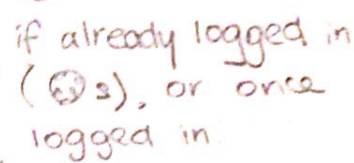 if already logged in
( s), or once
logged in